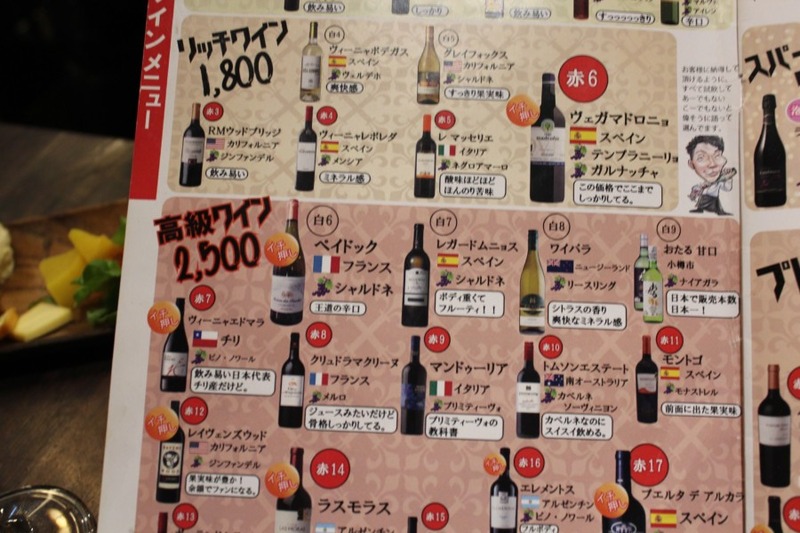 飲み易い
しっかり
飲み易い
すっっっっっきり
アイレン
辛口
インメニュー
リッチワイン
1,800
白4
ヴィーニャボデガス
スペイン
ヴェルデホ
爽快感
白5
グレイフォックス
カリフォルニア
シャルドネ
すっきり果実味
赤3
RMウッドブリッジ
カリフォルニア
ジンファンデル
飲み易い
赤4
ヴィーニャレポレダ
スペイン
メンシア
ミネラル感
赤5
レ マッセリエ
イタリア
ネグロアマーロ
酸味ほどほど
ほんのり苦味
イチ押し
赤6
ヴェガマドロニョ
スペイン
テンプラニーリョ
ガルナッチャ
この価格でここまで
しっかりしてる。
お客様に納得して
頂けるように、
すべて試飲して
あーでもない
こーでもないと
偉そうに語って
選んでます。
スパー
高級ワイン
2,500
イチ押し
白6
ペイドック
フランス
シャルドネ
王道の辛口
白7
レガードムニョス
スペイン
シャルドネ
ボディ重くて
フルーティ！！
白8
ワイパラ
ニュージーランド
リースリング
シトラスの香り
爽快なミネラル感
白9
おたる 甘口
小樽市
ナイアガラ
日本で販売本数
日本一！
プレ
イチ押し
赤7
ヴィーニャエドマラ
チリ
ピノ・ノワール
飲み易い日本代表
チリ産だけど。
赤8
クリュドラマクリーヌ
フランス
メルロ
ジュースみたいだけど
骨格しっかりしてる。
赤9
マンドゥーリア
イタリア
プリミティーヴォ
プリミティーヴォの
教科書
赤10
トムソンエステート
南オーストラリア
カベルネ
ソーヴィニヨン
カベルネなのに
スイスイ飲める。
赤11
モントゴ
スペイン
モナストレル
前面に出た果実味
イチ押し
赤12
レイヴェンズウッド
カリフォルニア
ジンファンデル
果実味が豊か！
余韻でファンになる。
赤13
イチ押し
赤14
ラスモラス
アルゼンチン
赤15
赤16
エレメントス
アルゼンチン
ピノ・ノワール
フルボディ
イチ押し
赤17
プエルタ デ アルカラ
スペイン